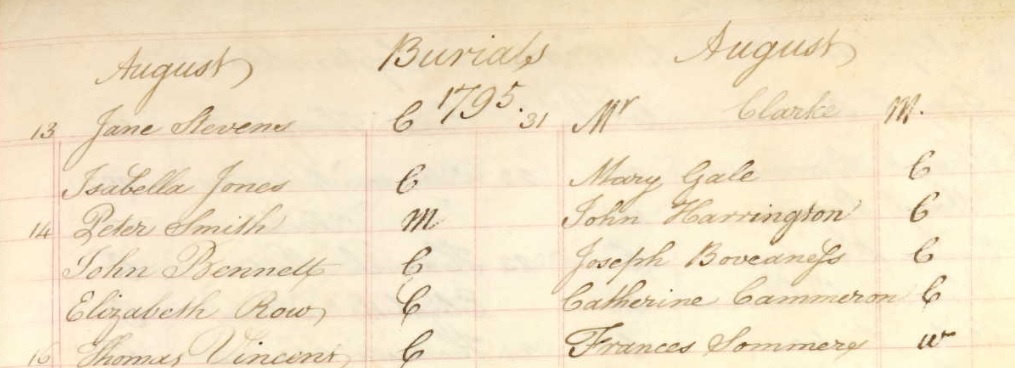 August Burials August
1795.
13 Jane Stevens C 31 Mr Clarke M.
Isabella Jones C Mary Gale C
14 Peter Smith M John Harrington C
John Bennett C Joseph C
Elizabeth Row C Catherine Cammeron C
16 Thomas Vincent C Frances Sommers W